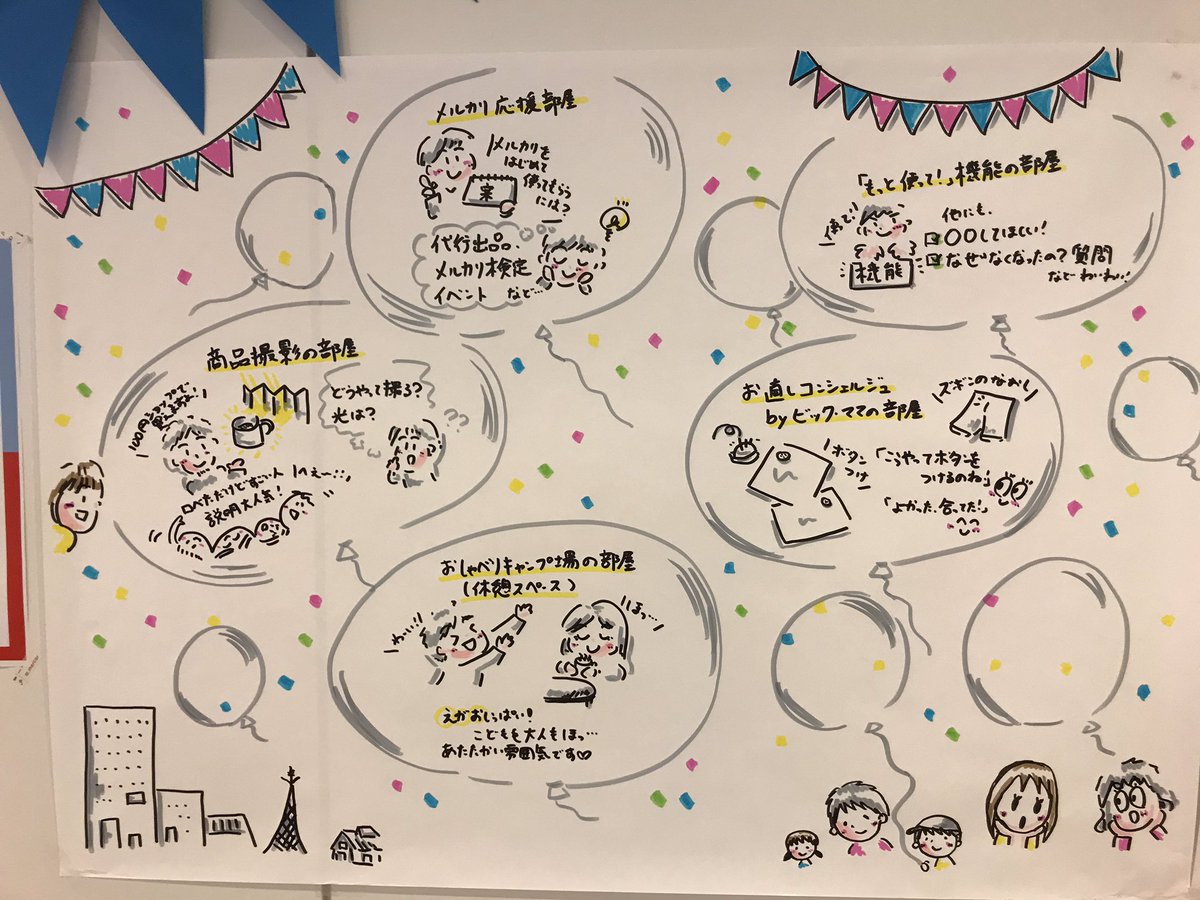 メルカリ応援部屋
メルカリを
はじめて
使ってもらう
には?
案
代行出品。
メルカリ検定
イベント など…
「もっと使って!」機能の部屋
使って!
機能
他にも、
○○してほしい!
なぜなくなったの?質問
などわいわい!
商品撮影の部屋
100円ショップで
買えるよ!
どうやって撮る?
光は?
??
へぇー
説明大人気!
お直しコンシェルジュ
byビック・ママの部屋
ズボンのなおし
ボタン
つけ
「こうやってボタンを
つけるのね」
「よかった、合ってた!」
おしゃべりキャンプ場の部屋
(休憩スペース)
わーい!!
ほっ…
えがおいっぱい!
こどもも大人もほっ…
あたたかい雰囲気です♡